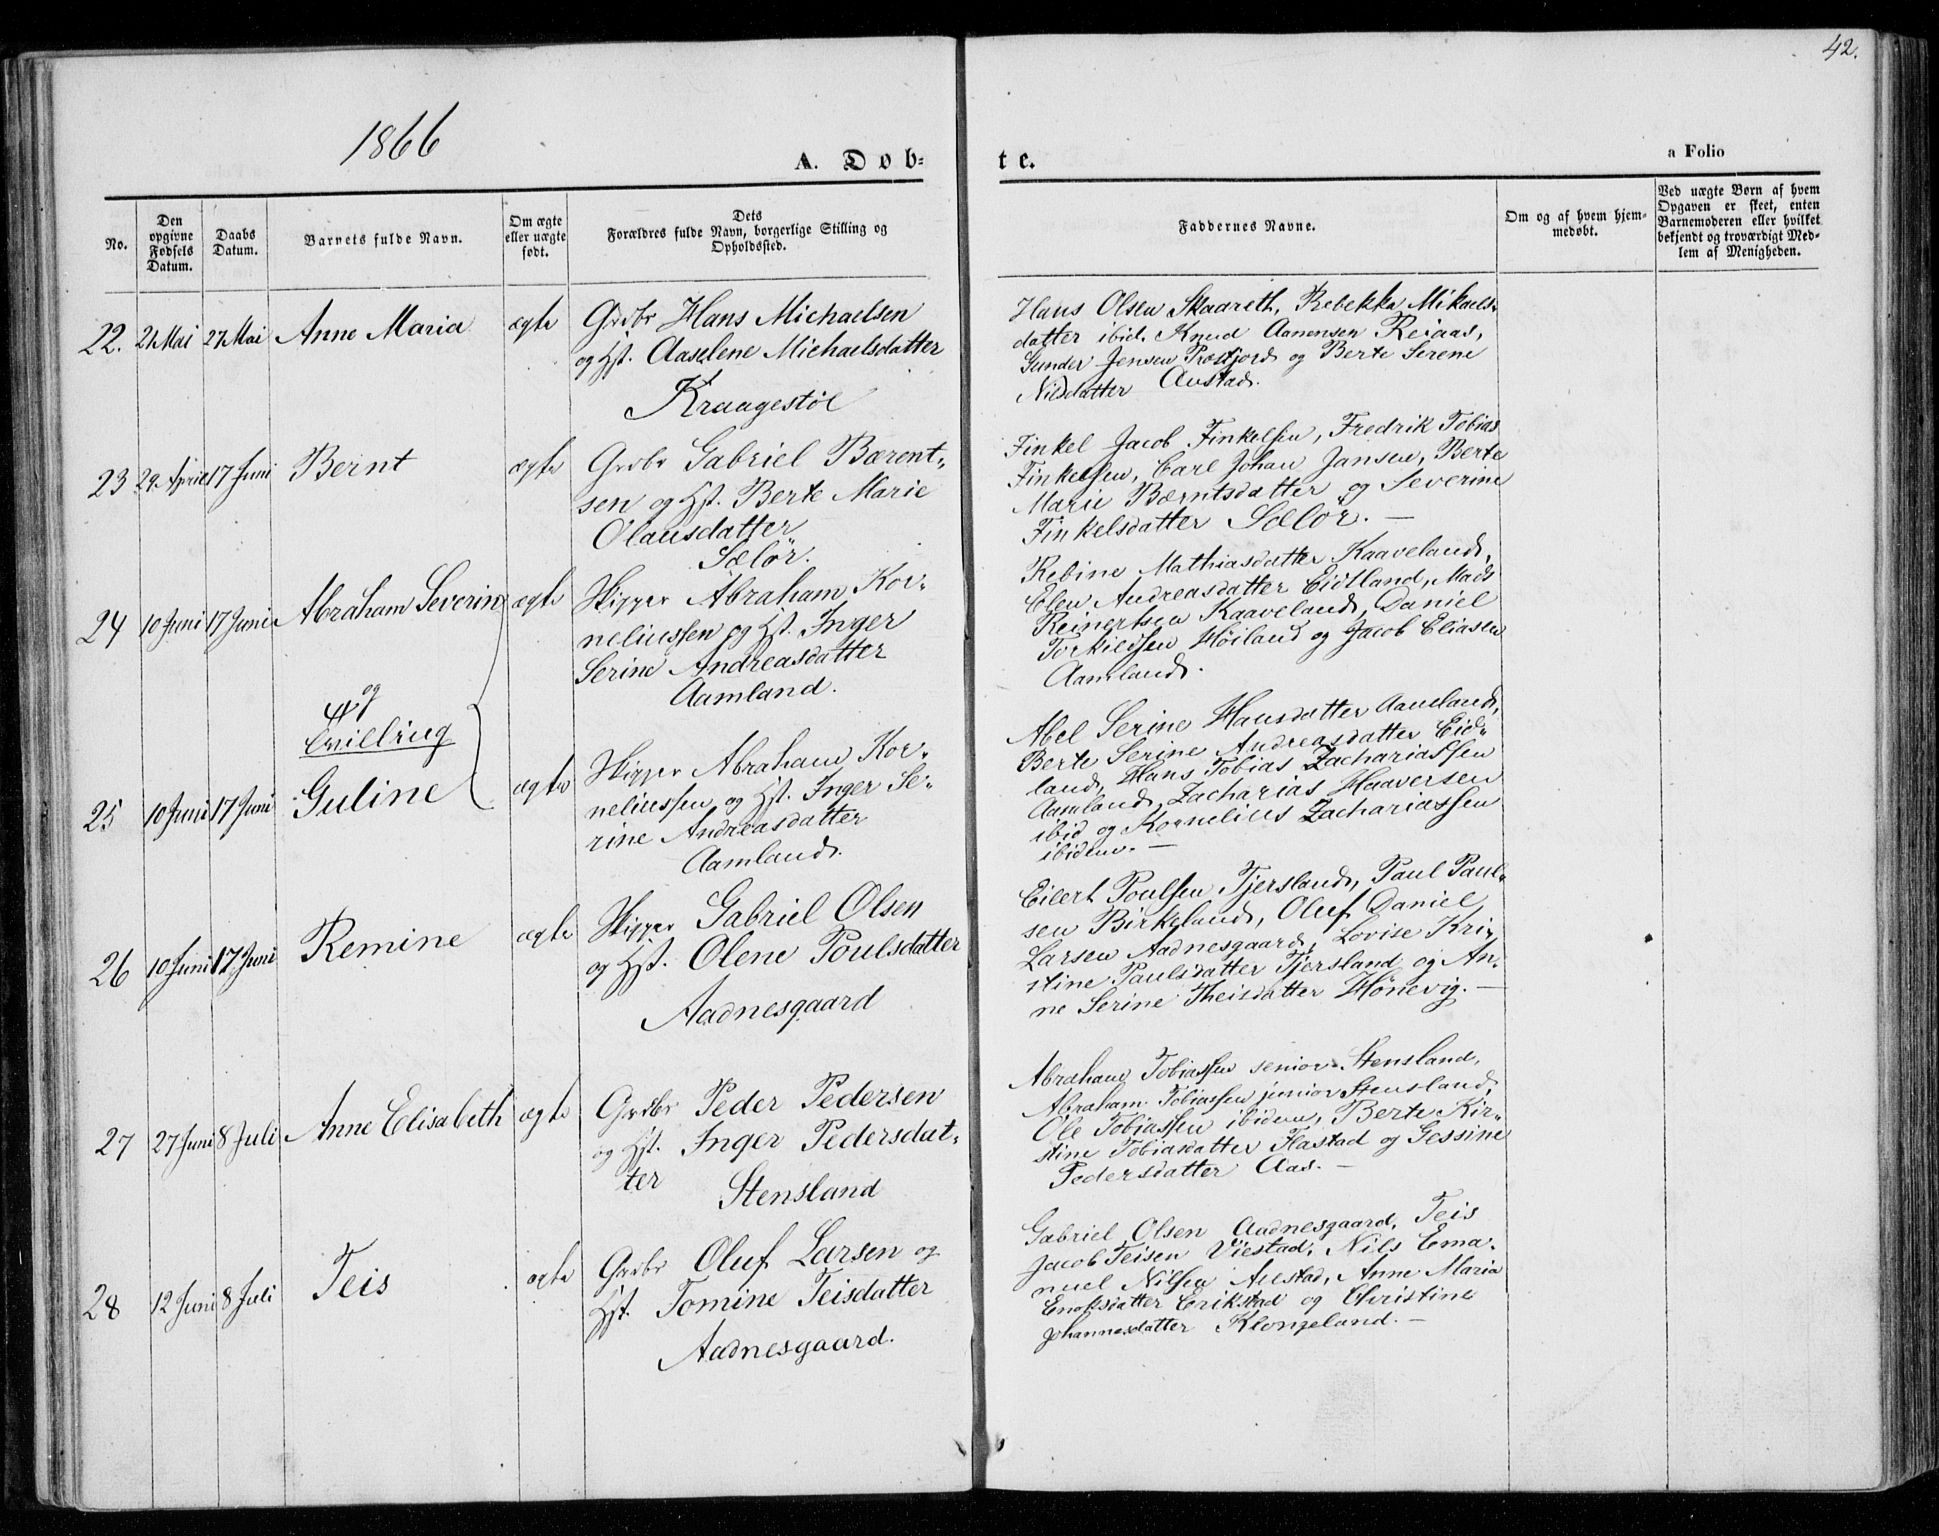 42.
1866
A. Døb-
te.
a Folio
No.
Den
opgivne
Fødsels
Datum.
Daabs
Datum.
Barnets fulde Navn.
Om ægte
eller uægte
født.
Dets
Forældres fulde Navn, borgerlige Stilling og
Opholdssted.
Faddernes Navne.
Om og af hvem hjem-
medøbt.
Ved uægte Børn af hvem
Opgaven er skeet, enten
Barnemoderen eller hvilket
bekjendt og troværdigt Med-
lem af Menigheden.
22. 21 Mai 27 Mai Anne Maria ægte
Grdbr Hans Michaelsen
og Hst. Aaselene Michaelsdatter
Kraagestøl
Hans Olsen Skaareth, Rebekka Mikaels-
datter ibid. Knud Aanensen Reiaas,
Gunder Jensen Præstjord og Berte Serene
Nilsdatter Austad.
23 29. April 17 Juni Bernt ægte
Grdbr Gabriel Bærent-
sen og Hst. Berte Marie
Olausdatter
Sælør.
Finkel Jacob Finkelsen, Fredrik Tobias
Finkelsen, Carl Johan Jansen, Berte
Marie Bærntsdatter og Severine
Finkelsdatter Sælör. —
24 10 Juni 17 Juni Abraham Severin ægte
Skipper Abraham Kor-
neliussen og Hst. Inger
Serine Andreasdatter
Aamland.
Rebine Mathiasdatter Kaaveland,
Elen Andreasdatter Eidtland, Mads
Reinertsen Kaaveland, Daniel
Torkildsen Höiland og Jacob Eliasen
Aamland.
og
Tvilling
25 10 Juni 17 Juni Guline ægte
Skipper Abraham Kor-
neliussen og Hst. Inger Se-
rine Andreasdatter
Aamland.
Abel Serine Hansdatter Aamland,
Berte Serine Andreasdatter Eid-
land, Hans Tobias Zachariassen
Aamland, Zacharias Haaversen
ibid og Kornelius Zachariassen
ibidem. —
26 10 Juni 17 Juni Remine ægte
Skipper Gabriel Olsen
og Hst. Olene Poulsdatter
Aadnesgaard
Eilert Poulsen Tjersland, Paul Paul-
sen Birkeland, Oluf Daniel
Larsen Aadnesgaard, Lovise Kri-
stine Paulsdatter Tjersland og An-
ne Serine Theisdatter Hönevig. —
27 27 Juni 8 Juli Anne Elisabeth ægte
Grdbr Peder Pedersen
og Hst. Inger Pedersdat-
ter
Stensland
Abraham Tobiassen senior Stensland,
Abraham Tobiassen junior Stensland,
Ole Tobiassen ibidem, Berte Kir-
stine Tobiasdatter Flastad og Gessine
Pedersdatter Aas. —
28 12 Juni 8 Juli Teis ægte
Grdbr Oluf Larsen og
Hst. Tomine Teisdatter
Aadnesgaard.
Gabriel Olsen Aadnesgaard, Teis
Jacob Teisen Viestad, Nils Ema-
nuel Nilsen Austad, Anne Maria
Enoksdatter Erikstad og Christine
Johannesdatter Klongeland. —